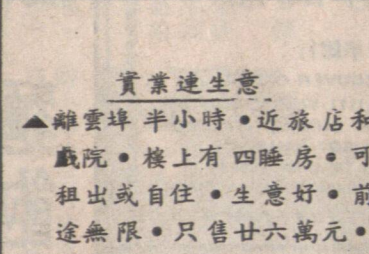 實業連生意
▲離雲埠半小時•近旅店和
戲院•樓上有四睡房•可
租出或自住•生意好•前
途無限•只售廿六萬元•